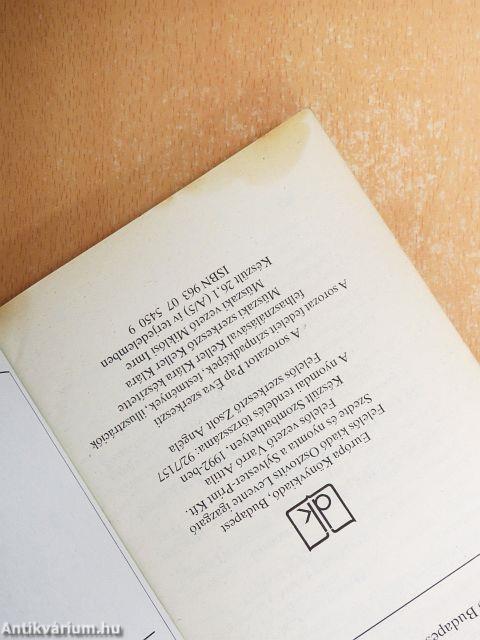 Európa Könyvkiadó, Budapest
Felelős kiadó Osztovits Levente igazgató
Szedte és nyomta a Sylvester-Print Kft.
Felelős vezető Varró Attila
Készült Szombathelyen, 1992-ben
A nyomdai rendelés törzsszáma: 92/7157
Felelős szerkesztő Zsolt Angéla
A sorozatot Pap Éva szerkeszti
A sorozat fedeleit színpadképek, festmények, illusztrációk
felhasználásával Keller Klára készítette
Műszaki szerkesztő Keller Klára
Műszaki vezető Miklósi Imre
Készült 26,1 (A/5) ív terjedelemben
ISBN 963 07 5450 9
Budapes
Antikvárium.hu